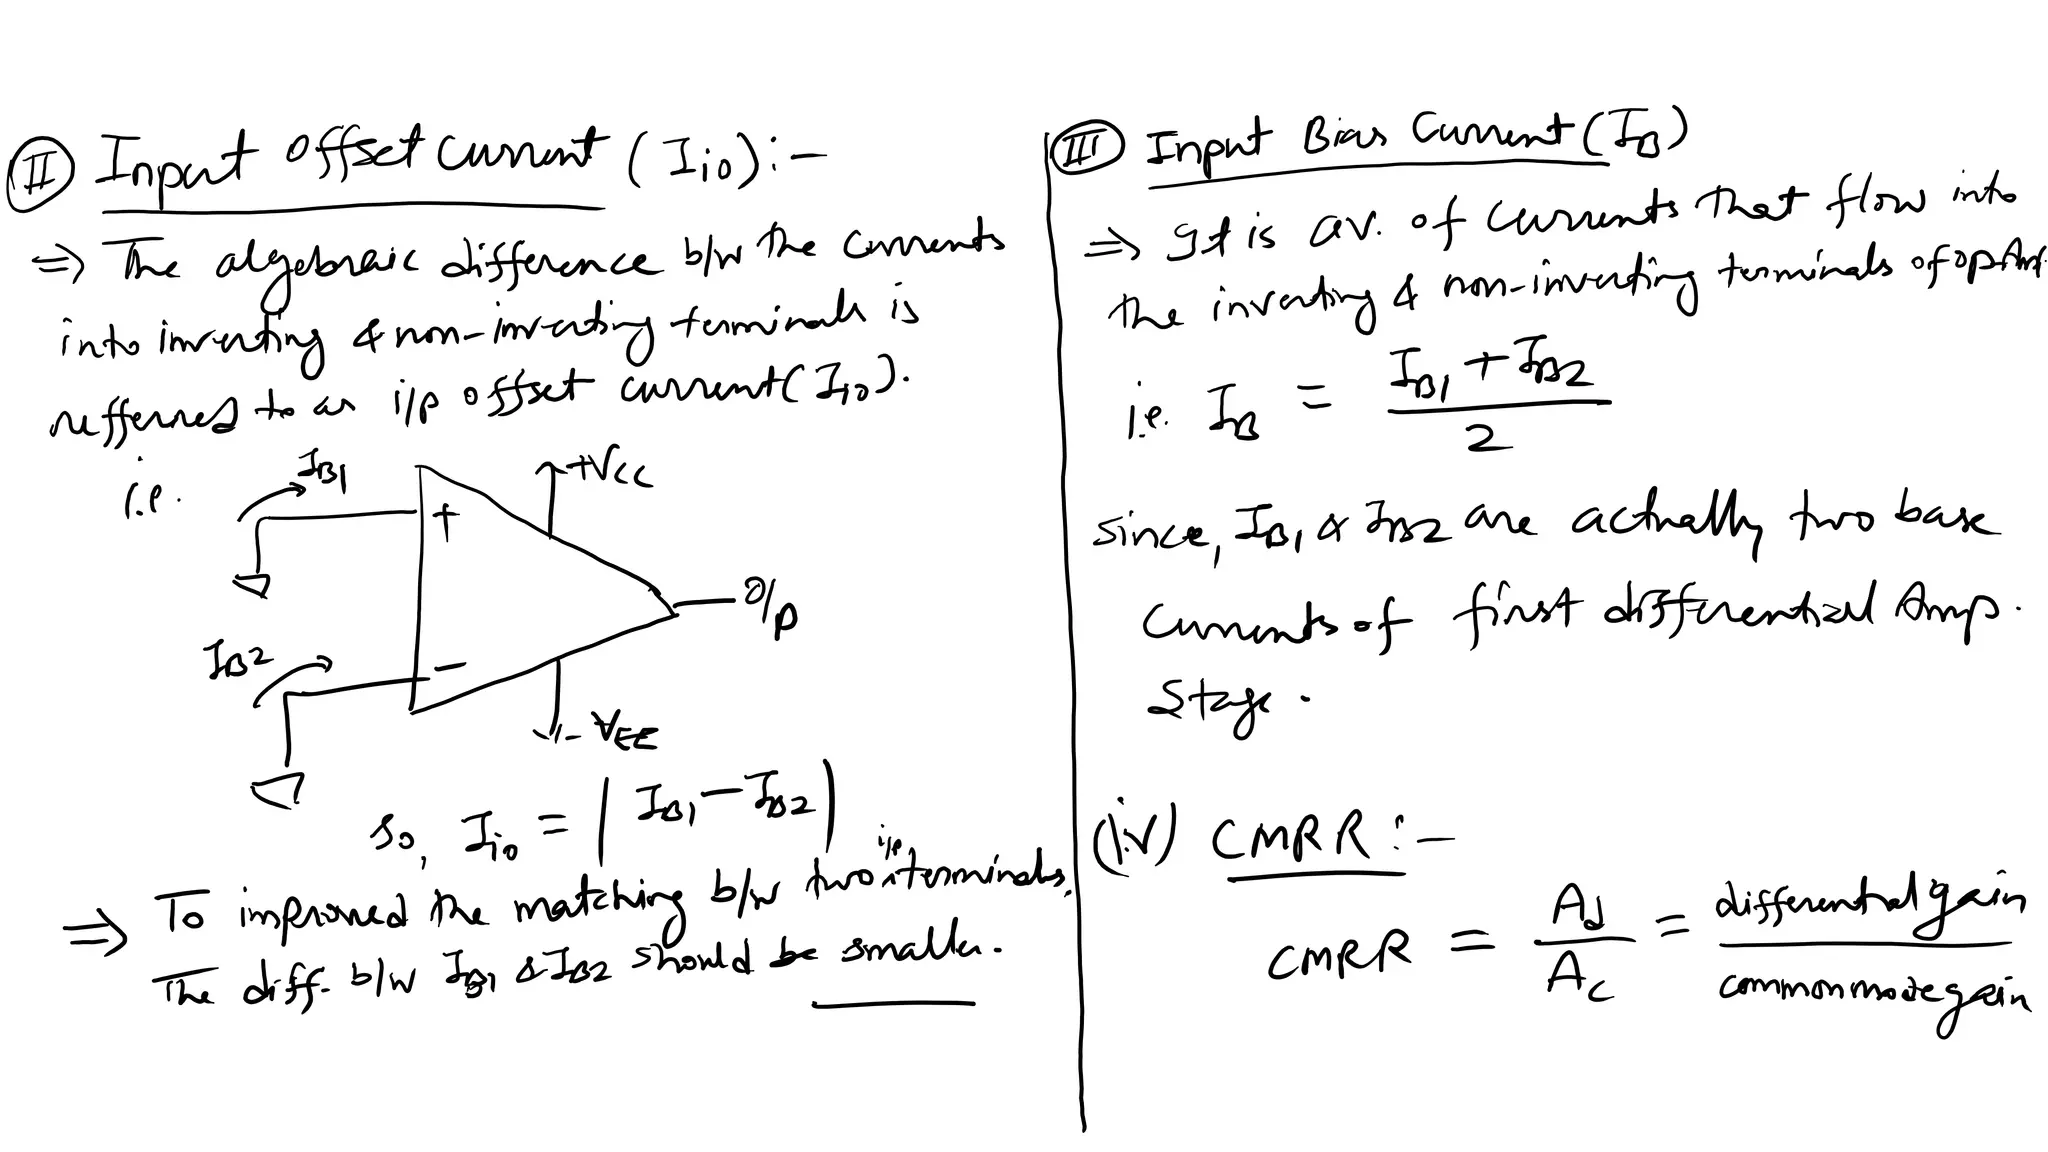 II Input offset current (Iio):-
=> The algebraic difference b/w the currents
into inverting & non-inverting terminals is
refferred to as i/p offset current (Iio).
i.e.
IB1
+VCC
+
O/p
IB2
-
-VEE
so, Iio = | IB1 - IB2 |
=> To improved the matching b/w two i/p terminals,
The diff. b/w IB1 & IB2 should be smaller.
III Input Bias Current (IB)
=> It is av. of currents that flow into
the inverting & non-inverting terminals of opAmp.
i.e. IB = IB1 + IB2
2
since, IB1 & IB2 are actually two base
currents of first differential Amp.
Stage.
(iv) CMRR :-
CMRR = Ad / Ac = differential gain / common mode gain